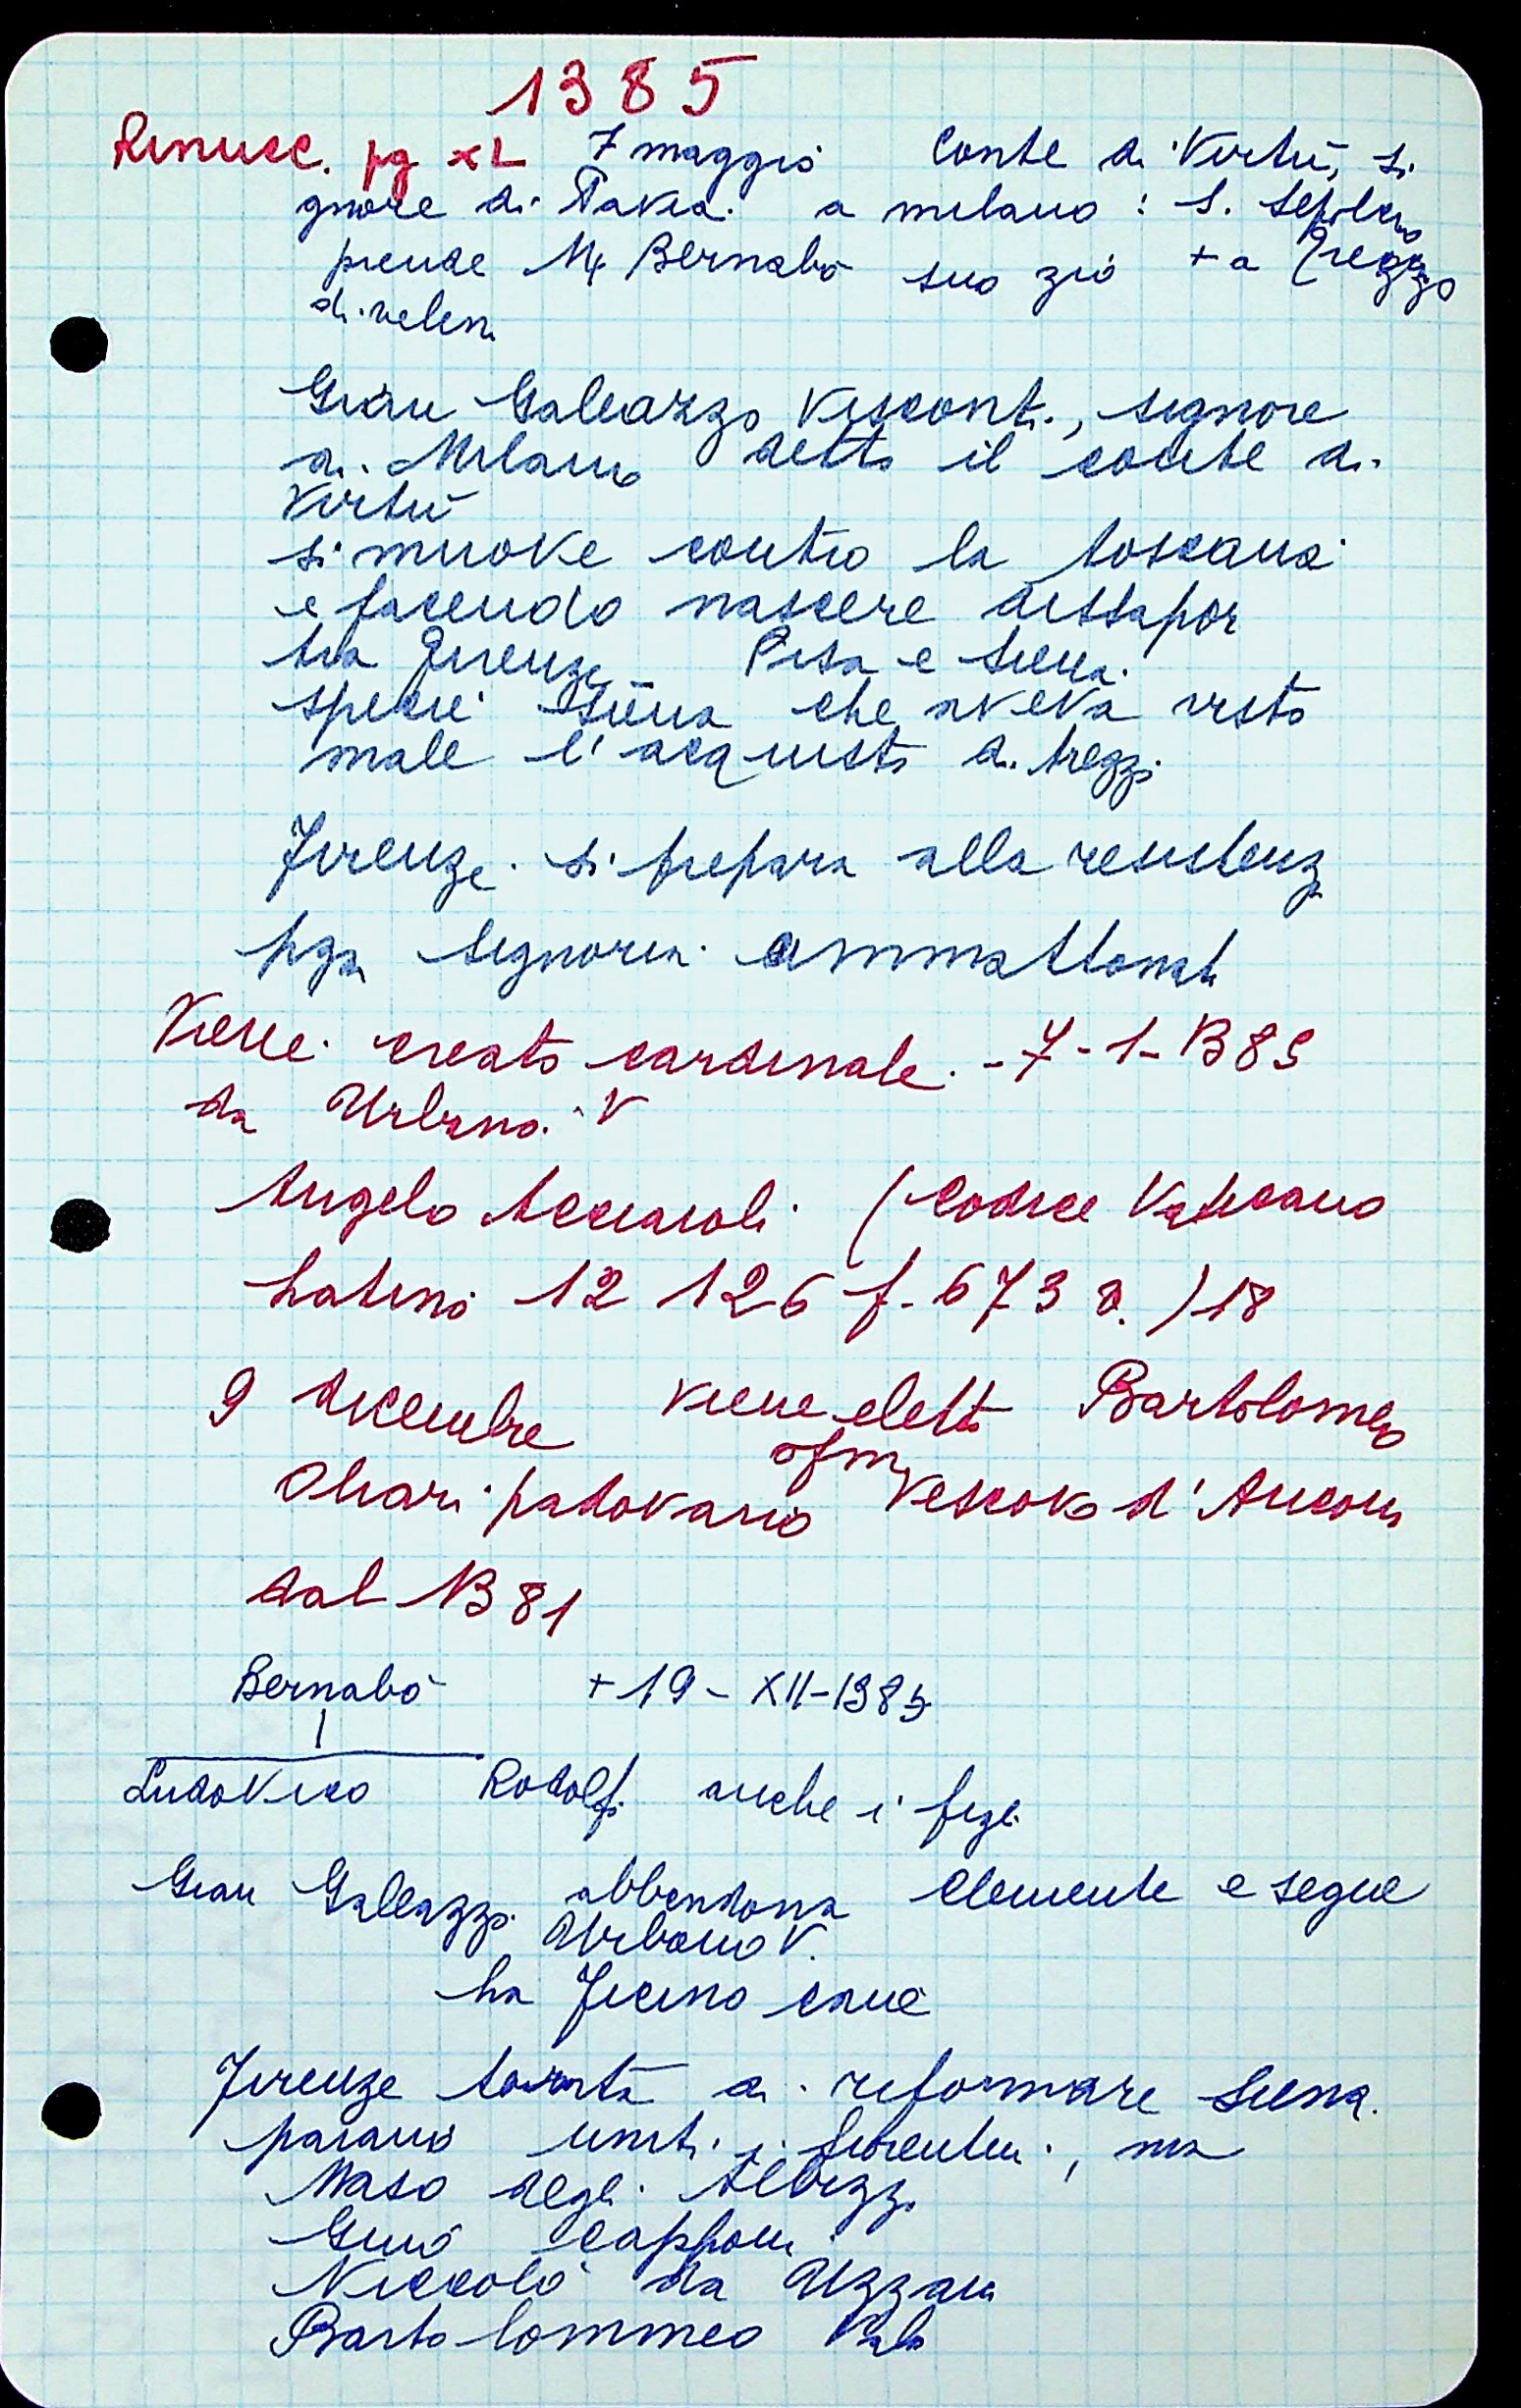 1385
Rinucc. pg XL 7 maggio Conte di Virtù, Si
gnore di Pavia. a milano: S. Sepolcro
prende Mr Bernabò suo zio + a Trezzo
di veleni
Gian Galeazzo Visconti, signore
di Milano detto il conte di
Virtù
si muove contro la toscana
e facendo nascere dissapor
tra Firenze Pisa e Siena.
specie Siena che aveva visto
male l'acquisto di Arezzo
Firenze si prepara alla resistenz
pza Signoria ammattonat
Viene creato cardinale. - 7-1-1385
da Urbano V
Angelo Acciaroli (Codice Vaticano
Latino 12 126 f. 673 ) 18
9 dicembre viene eletto Bartolomeo
ofm
Oliari padovano Vescovo d'Ancon
dal 1381
Bernabò + 19 - XII - 1385
Ludovico Rodolfo anche i figli
Gian Galeazzo abbandona Clemente e segue
Urbano V.
ha Facino cane
Firenze tenta di riformare Siena.
paiano uniti i fiorentini, ma
Maso degli Albizzi
Gino Capponi
Niccolò da Uzzano
Bartolommeo